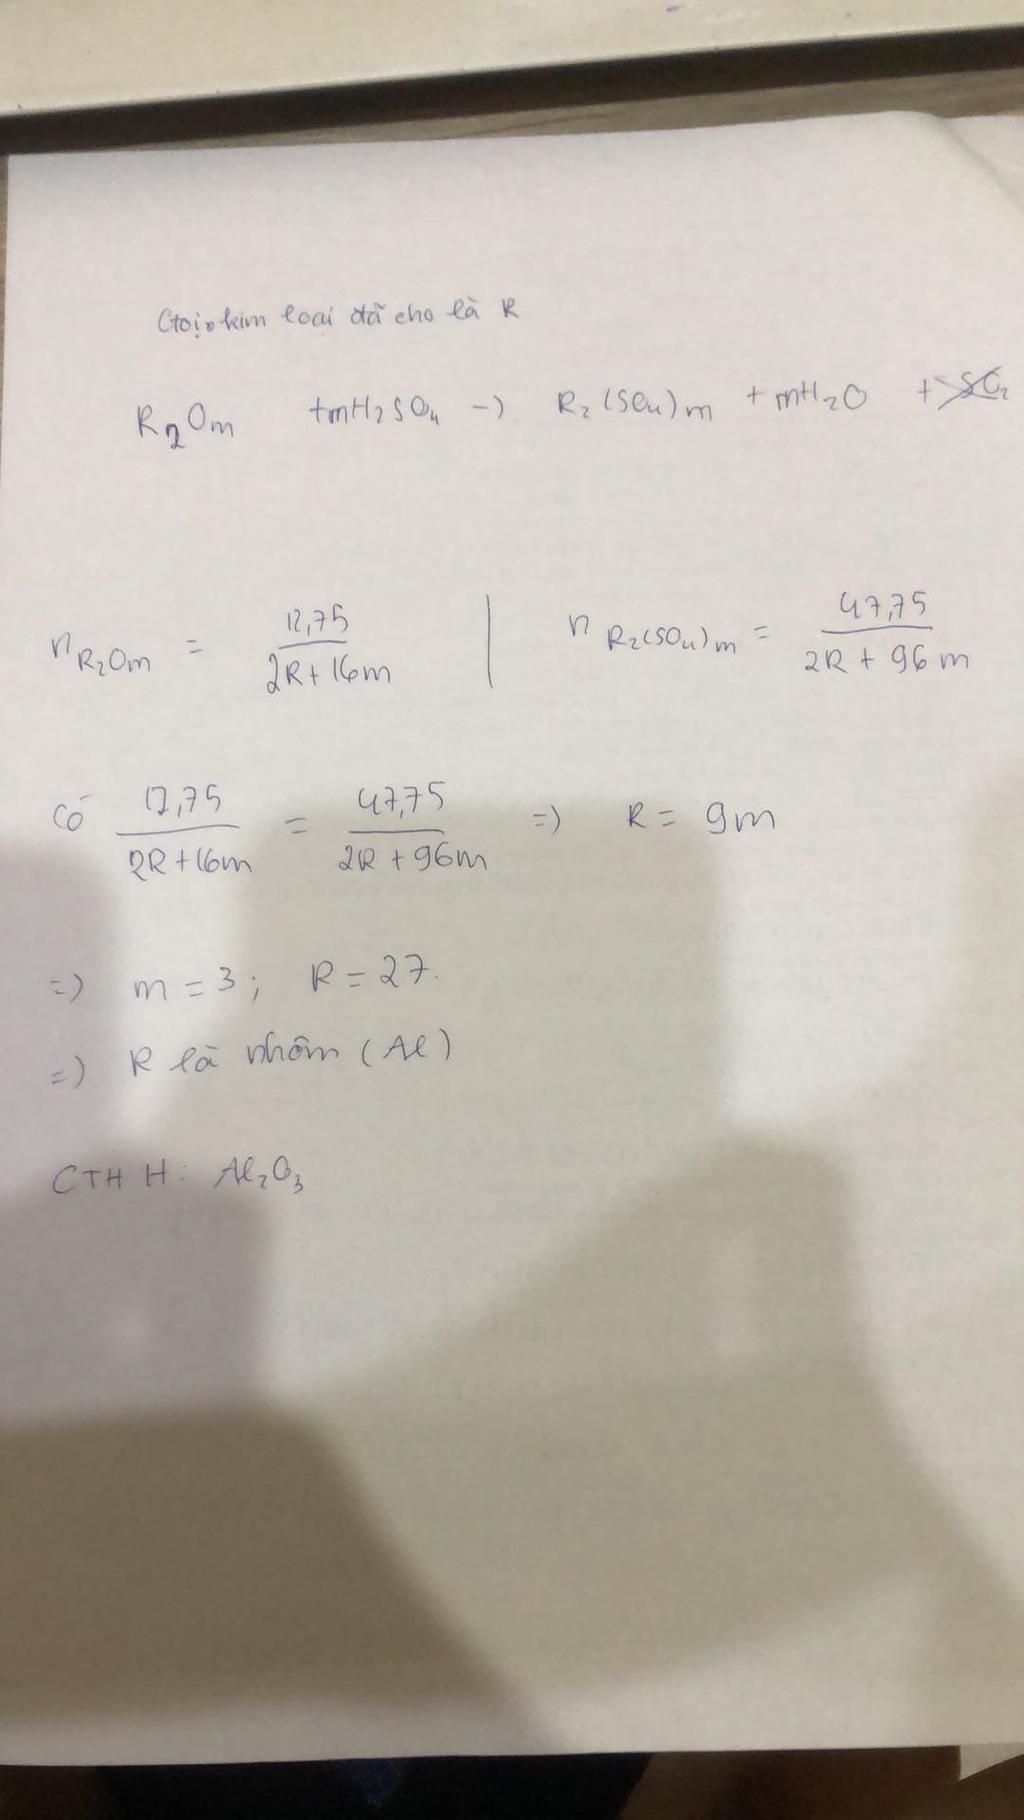 Gọi kim loại đã cho là R
R₂Oₘ + mH₂SO₄ → R₂(SO₄)ₘ + mH₂O +
n R₂Oₘ = 12,75 / (2R + 16m) | n R₂(SO₄)ₘ = 47,75 / (2R + 96m)
Có 12,75 / (2R + 16m) = 47,75 / (2R + 96m) => R = 9m
=> m = 3; R = 27.
=> R là nhôm (Al)
CTHH: Al₂O₃